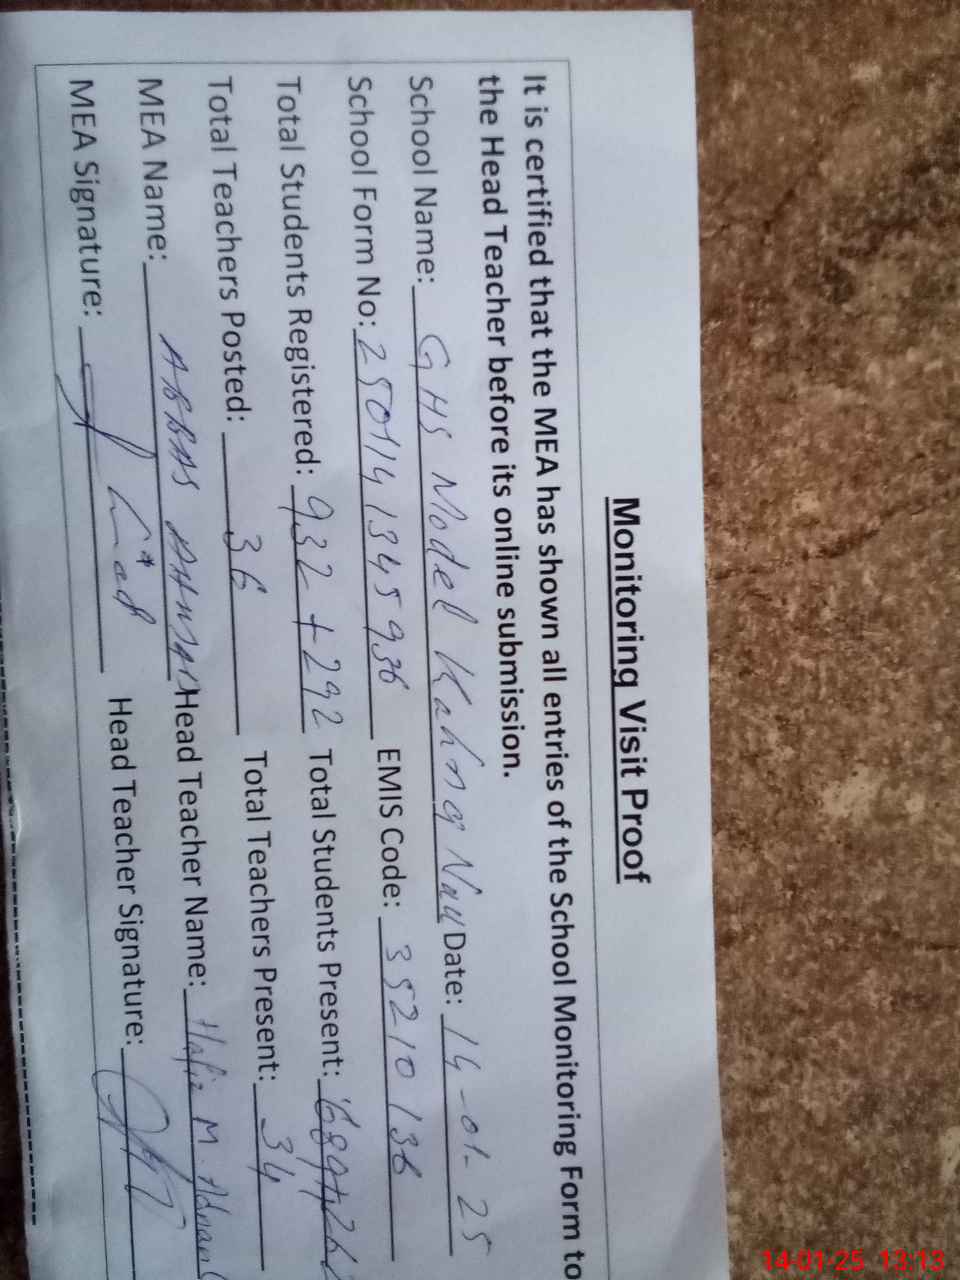 Monitoring Visit Proof
It is certified that the MEA has shown all entries of the School Monitoring Form to
the Head Teacher before its online submission.
School Name: GHS Model Kahna Nau Date: 14-01-25
School Form No: 2501141345936 EMIS Code: 35210136
Total Students Registered: 932 + 292 Total Students Present:
Total Teachers Posted: 36 Total Teachers Present: 34
MEA Name: ABBAS Head Teacher Name: Hafiz M. Adnan
MEA Signature: Head Teacher Signature:
14-01-25 13:13